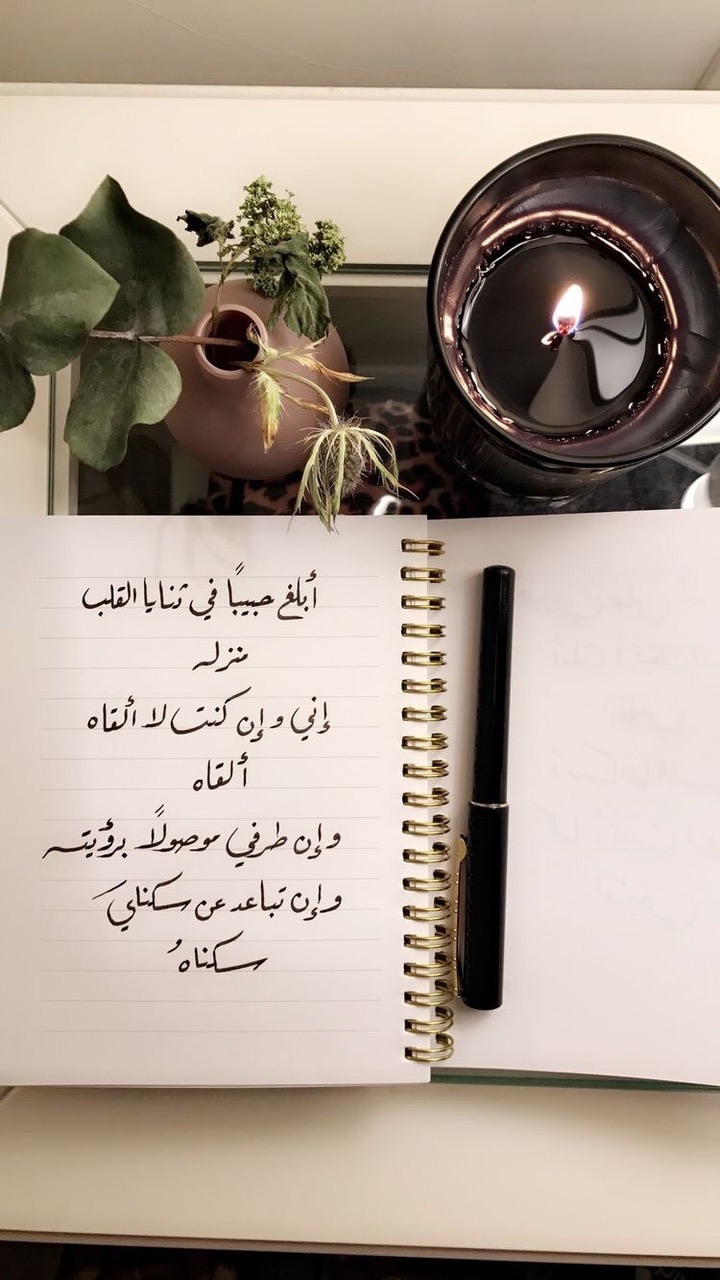 أبلغ حبيبًا في ثنايا القلب
منزله
إني وإن كنت لا ألقاه
ألقاه
وإن طرفي موصولًا برؤيته
وإن تباعد عن سكنايَ
سكناهُ